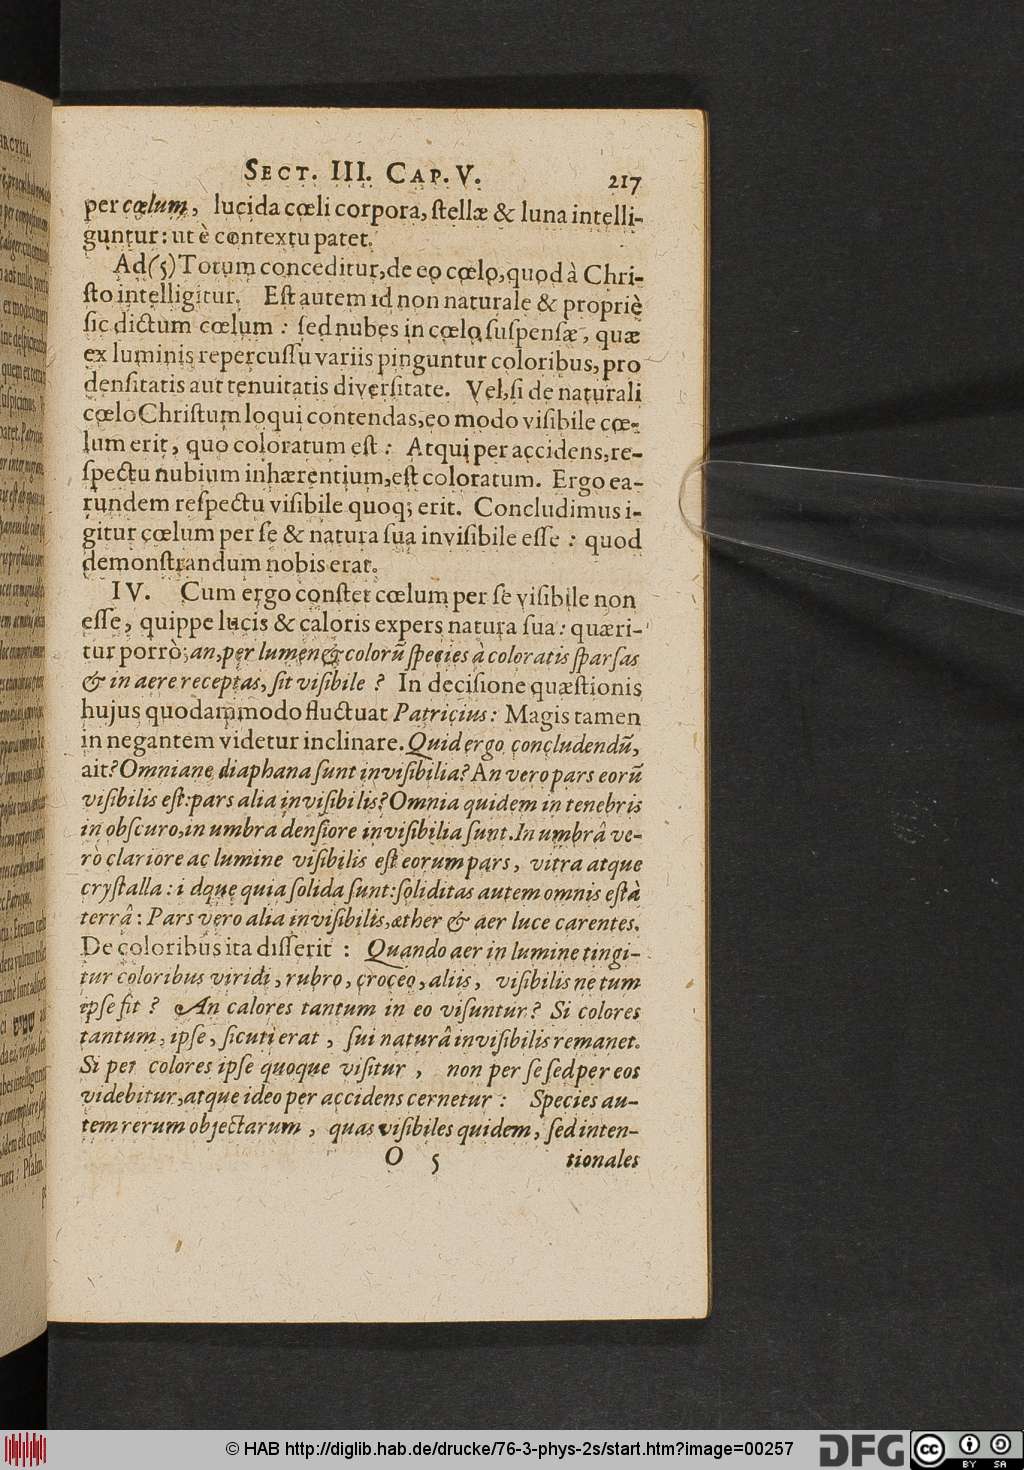 SECT. III. CAP. V. 217
per cœlum, lucida cœli corpora, ſtellæ & luna intelli-
guntur: ut è contextu patet.
Ad (5) Totum conceditur, de eo cœlo, quod à Chri-
ſto intelligitur. Eſt autem id non naturale & propriè
ſic dictum cœlum: ſed nubes in cœlo ſuſpenſæ, quæ
ex luminis repercuſſu variis pinguntur coloribus, pro
denſitatis aut tenuitatis diverſitate. Vel, ſi de naturali
cœlo Chriſtum loqui contendas, eo modo viſibile cœ-
lum erit, quo coloratum eſt: Atqui per accidens, re-
ſpectu nubium inhærentium, eſt coloratum. Ergo ea-
rundem reſpectu viſibile quoq; erit. Concludimus i-
gitur cœlum per ſe & natura ſua inviſibile eſſe: quod
demonſtrandum nobis erat.
IV. Cum ergo conſtet cœlum per ſe viſibile non
eſſe, quippe lucis & caloris expers natura ſua: quæri-
tur porrò, an, per lumen & colorũ ſpecies à coloratis ſparſas
& in aere receptas, ſit viſibile? In deciſione quæſtionis
hujus quodammodo fluctuat Patricius: Magis tamen
in negantem videtur inclinare. Quid ergo concludendũ,
ait? Omniane diaphana ſunt inviſibilia? An vero pars eorũ
viſibilis eſt: pars alia inviſibilis? Omnia quidem in tenebris
in obſcuro, in umbra denſiore inviſibilia ſunt. In umbrâ ve-
rò clariore ac lumine viſibilis eſt eorum pars, vitra atque
cryſtalla: i dque quia ſolida ſunt: ſoliditas autem omnis eſt à
terrâ: Pars vero alia inviſibilis, æther & aer luce carentes.
De coloribus ita diſſerit: Quando aer in lumine tingi-
tur coloribus viridi, rubro, croceo, aliis, viſibilis ne tum
ipſe fit? An calores tantum in eo viſuntur? Si colores
tantum, ipſe, ſicuti erat, ſui naturâ inviſibilis remanet.
Si per colores ipſe quoque viſitur, non per ſe ſed per eos
videbitur, atque ideo per accidens cernetur: Species au-
tem rerum objectarum, quas viſibiles quidem, ſed inten-
O 5 tionales
© HAB http://diglib.hab.de/drucke/76-3-phys-2s/start.htm?image=00257
DFG
cc BY SA